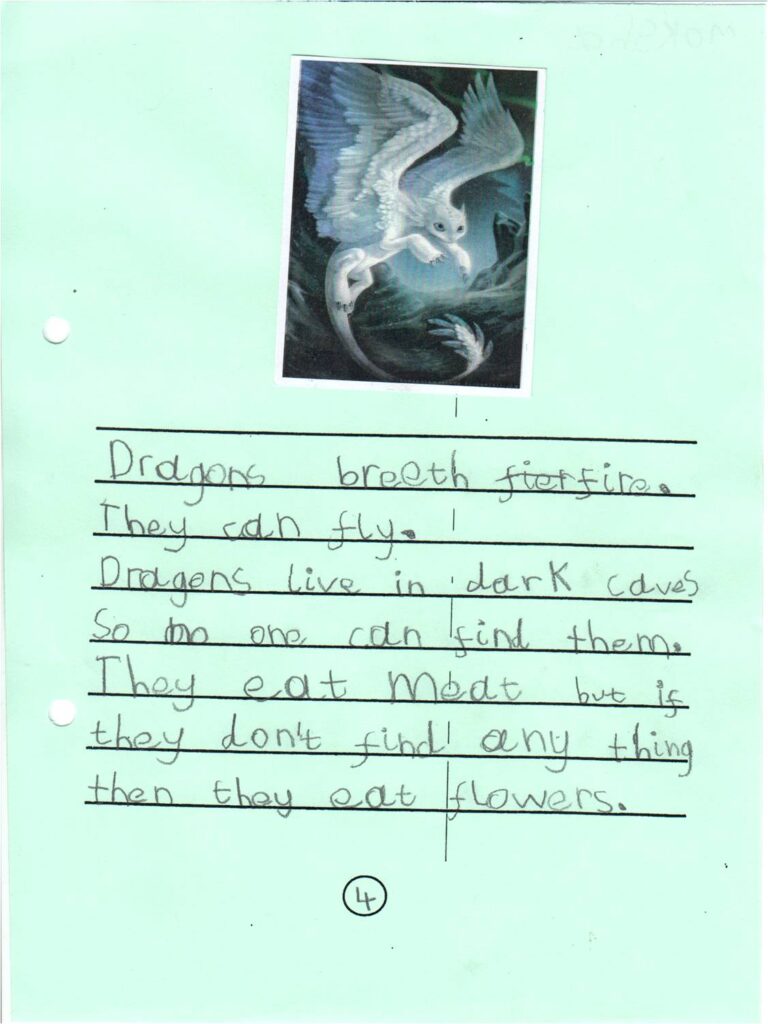 Dragons breeth fier fire.
They can fly.
Dragons live in dark caves
So no one can find them.
They eat meat but if
they don't find any thing
then they eat flowers.
4